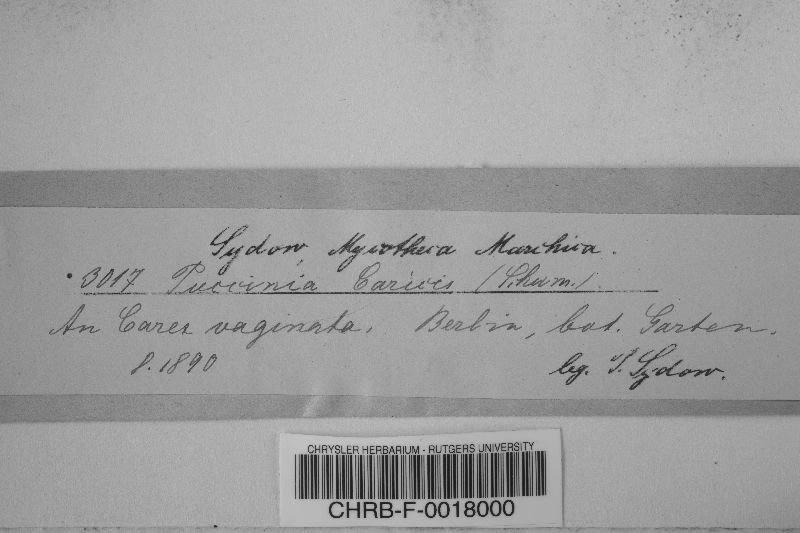 Sydow, Mycotheca Marchica.
3017 Puccinia Caricis (Schum.)
An Carex vaginata. Berlin, bot. Garten.
8.1890 leg. P. Sydow.
CHRYSLER HERBARIUM - RUTGERS UNIVERSITY
CHRB-F-0018000